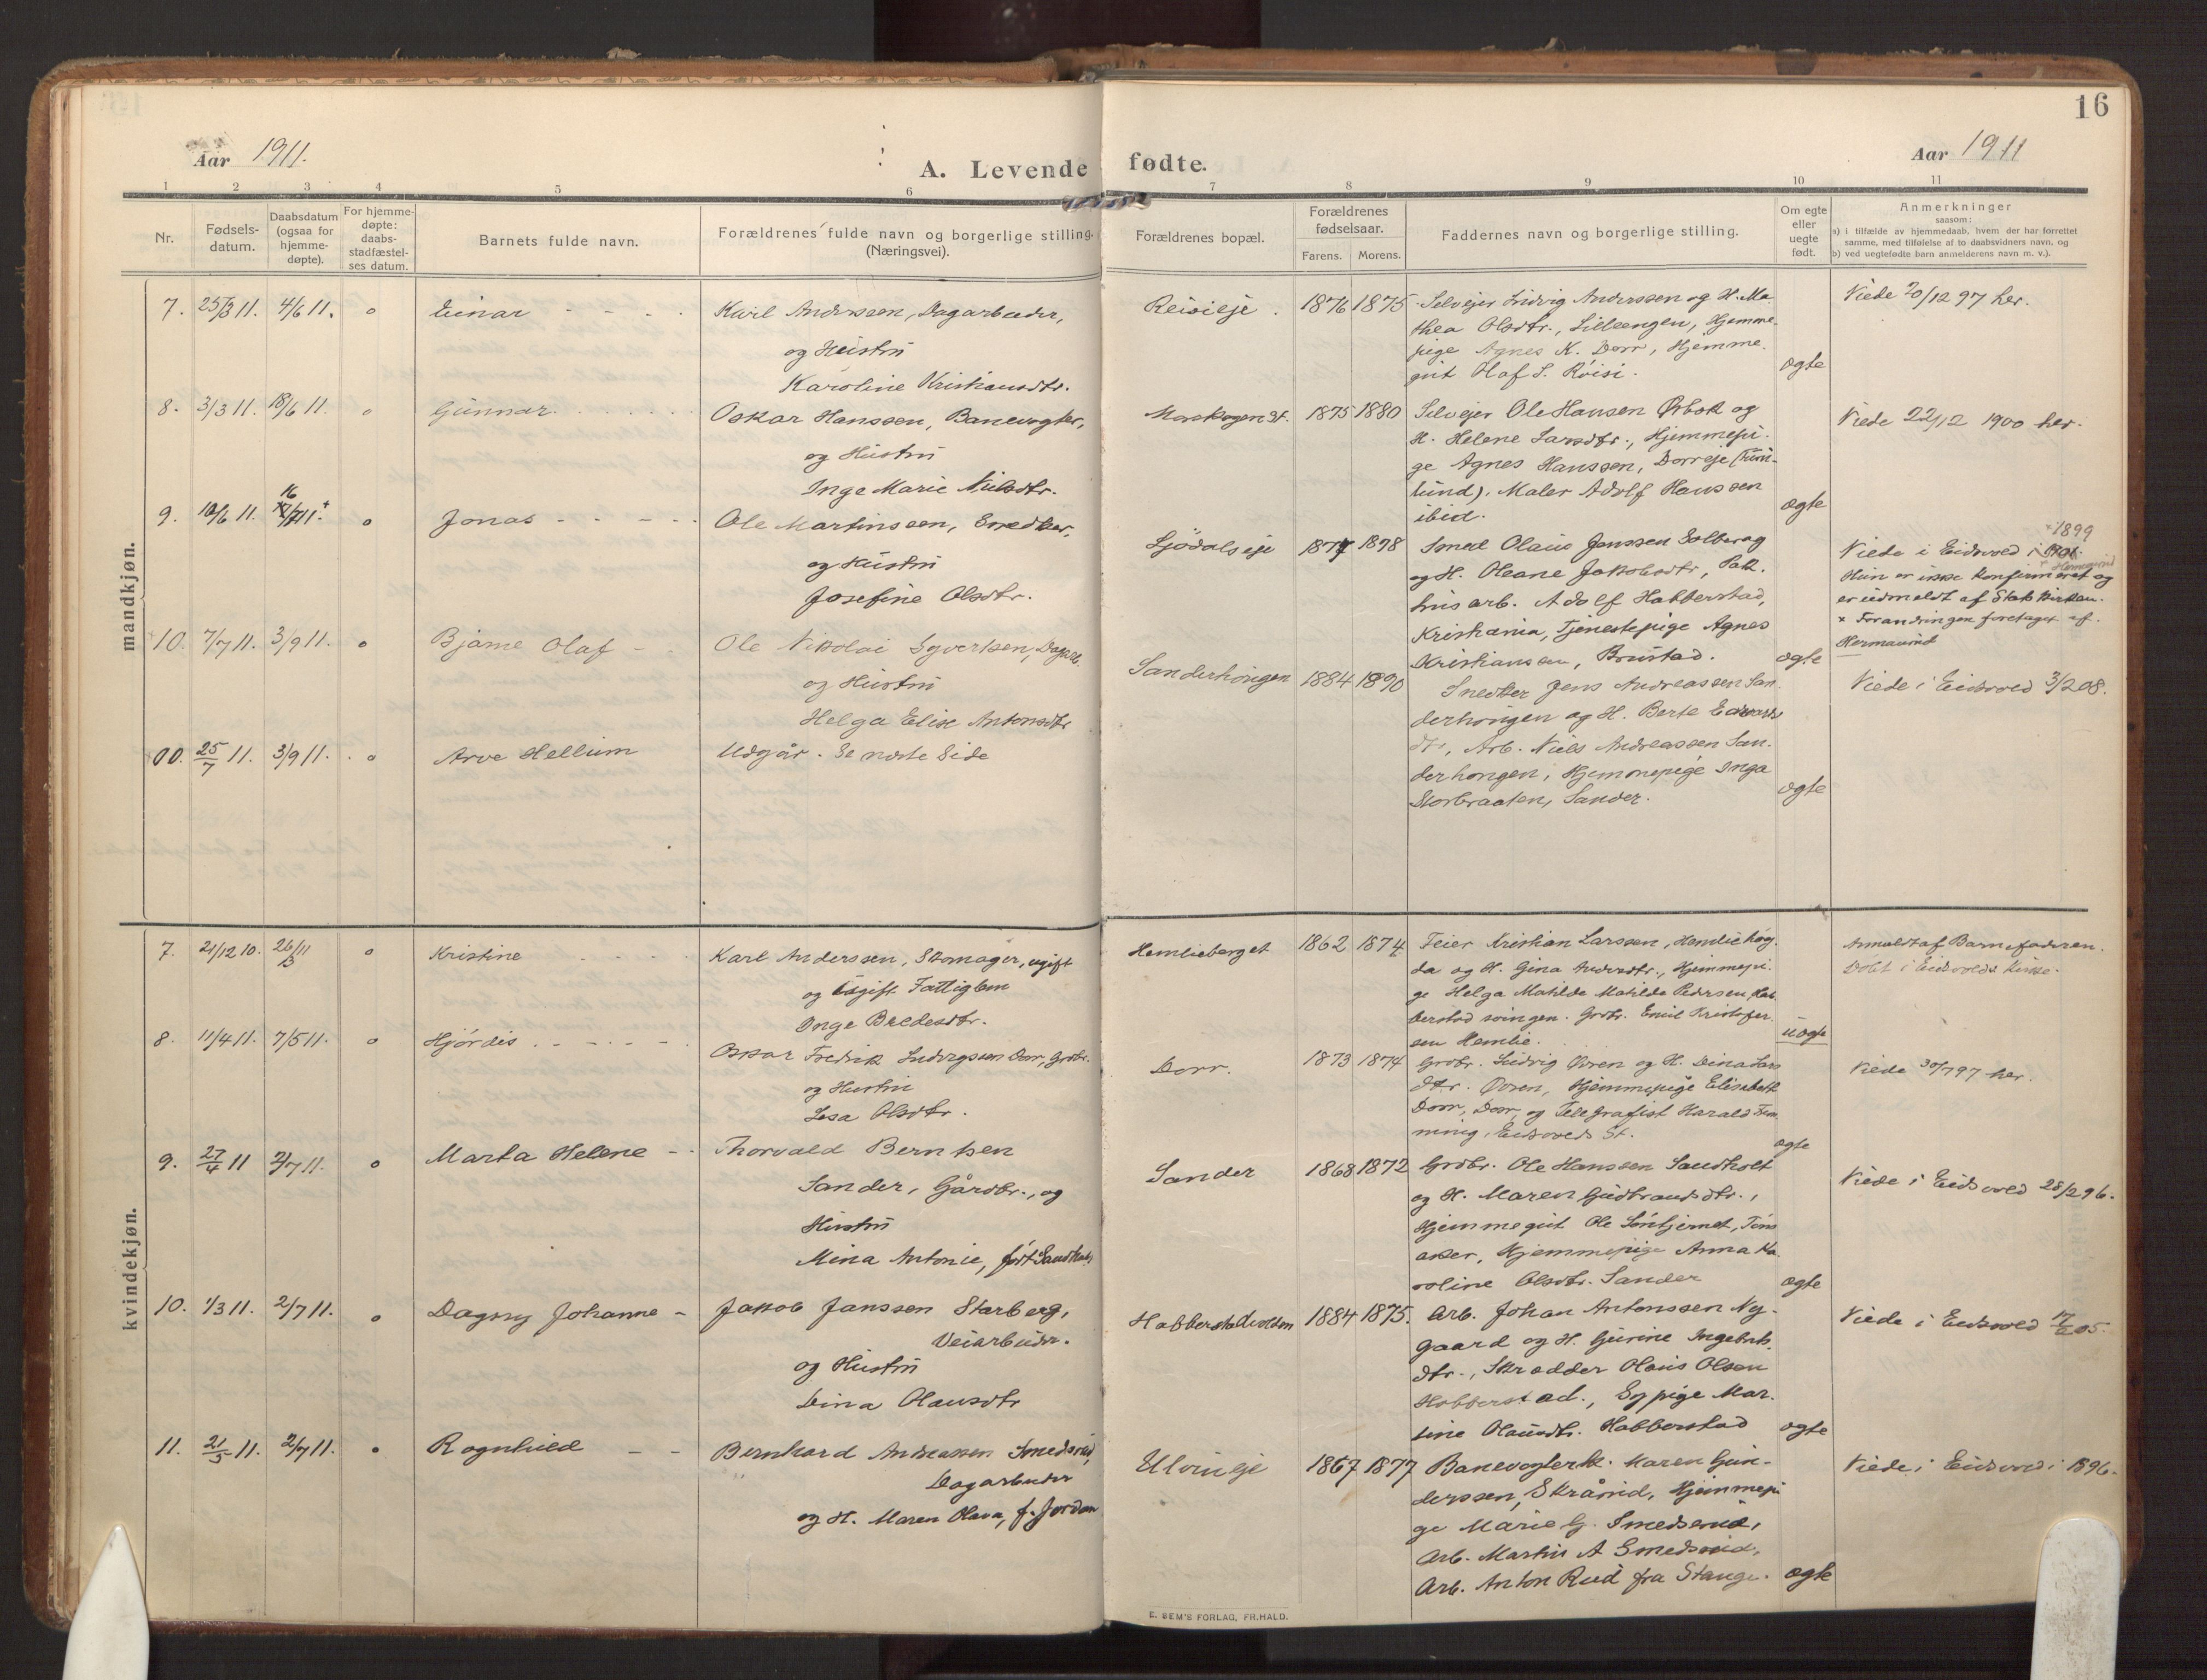 16
Aar 1911.
A. Levende fødte.
Aar 1911
1 2 3 4 5 6 7 8 9 10 11
Nr.
Fødsels-
datum.
Daabsdatum
(ogsaa for
hjemme-
døpte).
For hjemme-
døpte:
daabs-
stadfæstel-
ses datum.
Barnets fulde navn.
Forældrenes fulde navn og borgerlige stilling.
(Næringsvei).
Forældrenes bopæl.
Forældrenes
fødselsaar.
Farens. Morens.
Faddernes navn og borgerlige stilling.
Om egte
eller
uegte
født.
Anmerkninger
saasom:
a) i tilfælde av hjemmedaab, hvem der har forrettet
samme, med tilføielse af to daabsvidners navn, og
b) ved uegtefødte barn anmelderens navn m. v.).
mandkjøn.
7. 25/3 11. 4/6 11. o Einar
Karl Anderssen, Dagarbeider,
og Hustru
Karoline Kristiansdtr.
Reisieje. 1876 1875
Selvejer Ludvig Anderssen og H. Ma-
thea Olsdtr., Lilleengen, Hjemme-
pige Agnes K. Dorr, Hjemme-
gut Olaf S. Röisi.
ægte
Viede 20/12 97 her.
8. 3/3 11. 18/6 11. o Gunnar
Oskar Hanssen, Banevogter,
og Hustru
Inge Marie Nilsdtr.
Morskogen St. 1875 1880
Selvejer Ole Hansen Ørbæk og
H. Helene Larsdtr., Hjemmepi-
ge Agnes Hanssen, Dorreje
lund). Maler Adolf Hanssen
ibid.
ægte
Viede 22/12 1900 her.
9. 10/6 11. 16/7 11. + o Jonas
Ole Martinssen, Snedker,
og Hustru
Josefine Olsdtr.
Sjödalseje 1877 1878
Smed Olaus Jenssen Solberg
og H. Oleane Jakobsdtr., Pak-
husarb. Adolf Habberstad,
Kristiania, Tjenestepige Agnes
Kristianssen, Brustad.
ægte
+ 1899
Viede i Eidsvold i 1901.
Hun er ikke konfirmeret og
er udmeldt af Statskirken.
x Forandringen foretaget af
Hermanrud
10. 7/7 11. 3/9 11. o Bjarne Olaf
Ole Nikolai Syversen, Dagarb.
og Hustru
Helga Elise Antonsdtr
Sanderhöugen 1884 1890
Snedker Jens Andreassen San-
derhougen og H. Berte Edvards-
dtr., Arb. Niels Andreassen San-
derhougen, Hjemmepige Inga
Storbraaten, Sander.
ægte
Viede i Eidsvold 3/2 08.
00. 25/7 11. 3/9 11. o Arve Hellum
Udgår. Se næste Side
kvindekjøn.
7. 21/12 10. 26/3 11 o Kristine
Karl Anderssen, Skomager, ugift
og Ugift Fattiglem
Inge Bredesdtr.
Hemlieberget 1862 1874
Feier Kristian Larssen, Hemliehøg-
da og H. Gina Andersdtr., Hjemmepi-
ge Helga Matilde Matilde Pedersen, Hab-
berstad svingen. Grdbr. Emil Kristofer-
sen Hemlie.
uægte
Anmeldt af Barnefaderen.
Döbt i Eidsvolds Kirke.
8. 11/4 11. 7/5 11. o Hjördis
Oskar Fredrik Ludvigssen Dorr, Grdbr.
og Hustru
Lesa Olsdtr.
Dorr. 1873 1874
Grdbr. Ludvig Ovren og H. Dina Lars
dtr. Ovren, Hjemmepige Elisabeth
Dorr, Dorr, og Telegrafist Harald
ning, Eidsvold St.
ægte
Viede 30/7 97 her.
9. 27/4 11 2/7 11. o Marta Helene
Thorvald Berntsen
Sander, Gårdbr., og
Hustru
Mina Antonie, født Sandholt
Sander 1868 1872
Grdbr. Ole Hanssen Sandholt
og H. Maren Gudbrandsdtr.,
Hjemmegut Ole Söntjernet, Töns
aker, Hjemmepige Anna Ka-
roline Olsdtr. Sander
ægte
Viede i Eidsvold 28/2 96.
10. 1/3 11. 2/7 11. o Dagny Johanne
Jakob Janssen Starberg,
Veiarbeider.
og Hustru
Dina Olausdtr
Habberstadvolden 1884 1875.
Arb. Johan Antonssen Ny-
gaard og H. Gurine Ingebrets-
dtr., Skrædder Olaus Olsen
Habberstad., Sypige Mar-
tine Olausdtr. Habberstad
ægte
Viede i Eidsvold 05.
11. 21/5 11. 2/7 11. o Ragnhild
Bernhard Andreassen Smedsrud,
Dagarbeider
og H. Maren Olava, f. Jordan
Ulvineje 1867 1877
Banevogterk. Maren Gun-
derssen, Skrårud, Hjemmepi
ge Marie G. Smedsrud,
Arb. Martin A Smedsrud,
Arb. Anton Rud fra Stange.
ægte
Viede i Eidsvold i 1896.
E. SEM'S FORLAG, FR.HALD.